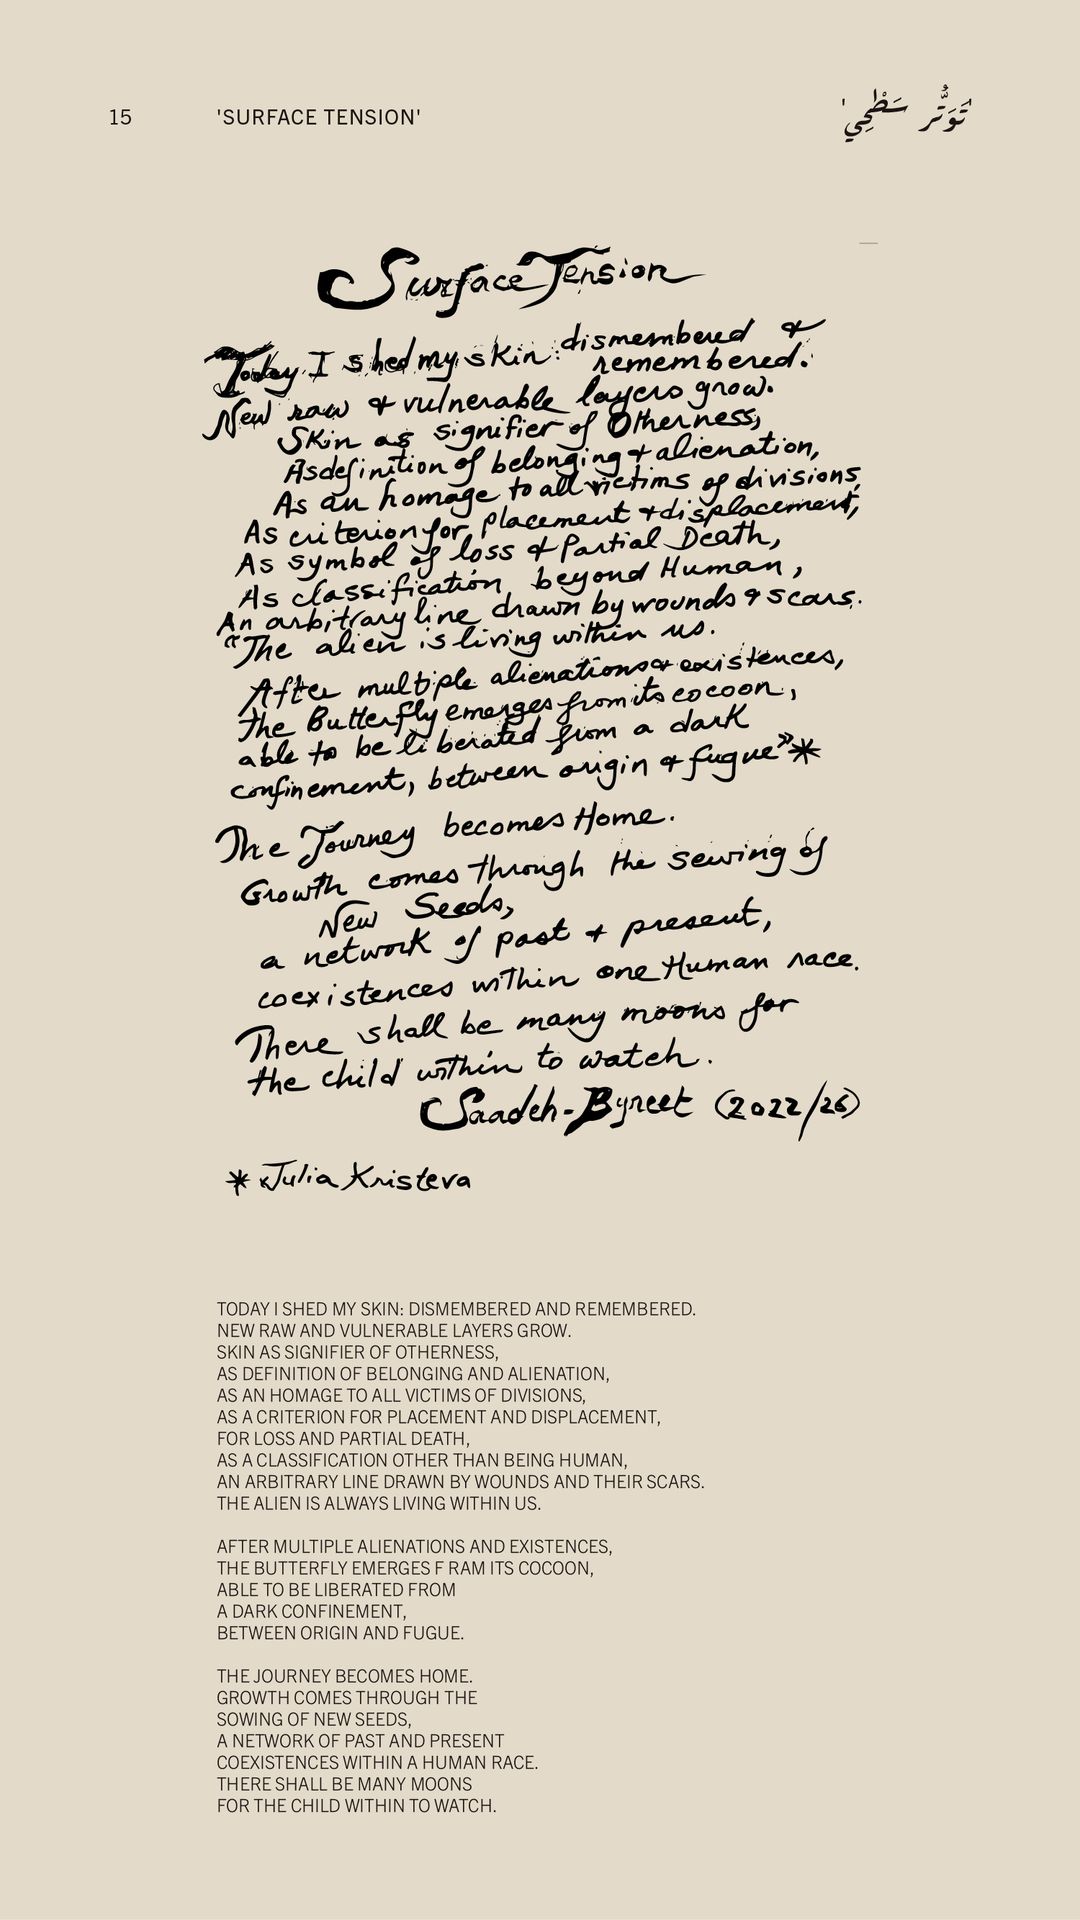 15
'SURFACE TENSION'
'تَوَتُّر سَطْحِي'
Surface Tension
Today I shed my skin: dismembered &
remembered.
New raw & vulnerable layers grow.
Skin as signifier of Otherness,
As definition of belonging & alienation,
As an homage to all victims of divisions,
As criterion for placement & displacement,
As symbol of loss & Partial Death,
As classification beyond Human,
An arbitrary line drawn by wounds & scars.
"The alien is living within us.
After multiple alienations & existences,
the Butterfly emerges from its cocoon,
able to be liberated from a dark
confinement, between origin & fugue"*
The Journey becomes Home.
Growth comes through the sewing of
New Seeds,
a network of past & present,
coexistences within one Human race.
There shall be many moons for
the child within to watch.
Saadeh-Byreet (2022/26)
* Julia Kristeva
TODAY I SHED MY SKIN: DISMEMBERED AND REMEMBERED.
NEW RAW AND VULNERABLE LAYERS GROW.
SKIN AS SIGNIFIER OF OTHERNESS,
AS DEFINITION OF BELONGING AND ALIENATION,
AS AN HOMAGE TO ALL VICTIMS OF DIVISIONS,
AS A CRITERION FOR PLACEMENT AND DISPLACEMENT,
FOR LOSS AND PARTIAL DEATH,
AS A CLASSIFICATION OTHER THAN BEING HUMAN,
AN ARBITRARY LINE DRAWN BY WOUNDS AND THEIR SCARS.
THE ALIEN IS ALWAYS LIVING WITHIN US.
AFTER MULTIPLE ALIENATIONS AND EXISTENCES,
THE BUTTERFLY EMERGES F RAM ITS COCOON,
ABLE TO BE LIBERATED FROM
A DARK CONFINEMENT,
BETWEEN ORIGIN AND FUGUE.
THE JOURNEY BECOMES HOME.
GROWTH COMES THROUGH THE
SOWING OF NEW SEEDS,
A NETWORK OF PAST AND PRESENT
COEXISTENCES WITHIN A HUMAN RACE.
THERE SHALL BE MANY MOONS
FOR THE CHILD WITHIN TO WATCH.